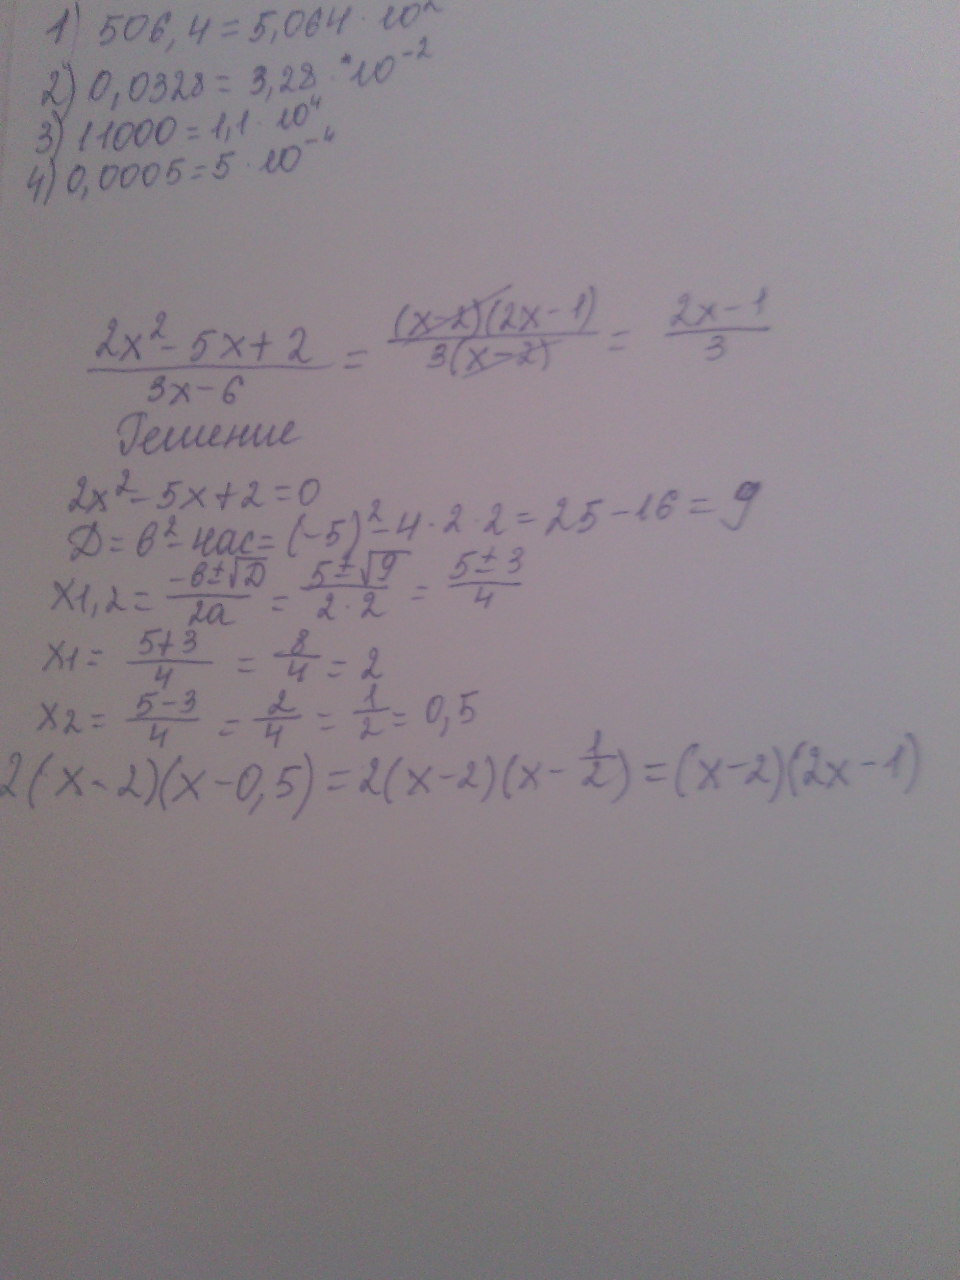 1) 506,4 = 5,064 · 10²
2) 0,0328 = 3,28 · 10⁻²
3) 11000 = 1,1 · 10⁴
4) 0,0005 = 5 · 10⁻⁴
(2x² - 5x + 2)/(3x - 6) = ((x-2)(2x-1))/(3(x-2)) = (2x-1)/3
Решение
2x² - 5x + 2 = 0
Д = в² - 4ас = (-5)² - 4 · 2 · 2 = 25 - 16 = 9
x1,2 = (-в ± √Д)/(2а) = (5 ± √9)/(2 · 2) = (5 ± 3)/4
x1 = (5+3)/4 = 8/4 = 2
x2 = (5-3)/4 = 2/4 = 1/2 = 0,5
2(x-2)(x-0,5) = 2(x-2)(x-1/2) = (x-2)(2x-1)